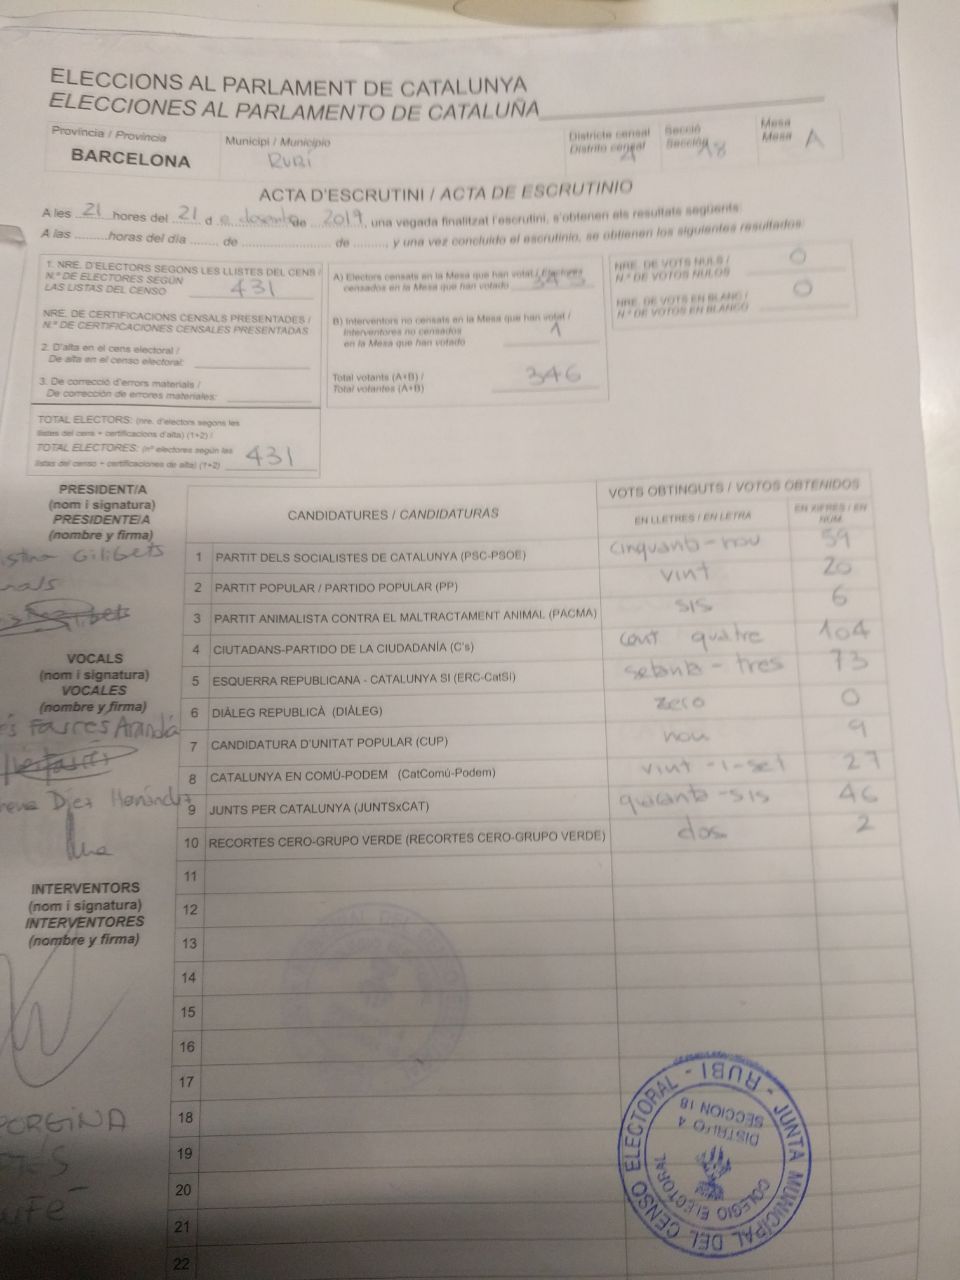 ELECCIONS AL PARLAMENT DE CATALUNYA
ELECCIONES AL PARLAMENTO DE CATALUÑA
Província / Provincia
BARCELONA
Municipi / Municipio
RUBÍ
Districte censal
Distrito censal
4
Secció
Sección
18
Mesa
Mesa
A
ACTA D'ESCRUTINI / ACTA DE ESCRUTINIO
A les 21 hores del 21 d e desembre de 2017, una vegada finalitzat l'escrutini, s'obtenen els resultats següents:
A las ..........horas del día ........ de ........................ de ........, y una vez concluido el escrutinio, se obtienen los siguientes resultados:
1. NRE. D'ELECTORS SEGONS LES LLISTES DEL CENS /
N.º DE ELECTORES SEGÚN
LAS LISTAS DEL CENSO 431
NRE. DE CERTIFICACIONS CENSALS PRESENTADES /
N.º DE CERTIFICACIONES CENSALES PRESENTADAS
2. D'alta en el cens electoral /
De alta en el censo electoral:
3. De correcció d'errors materials /
De corrección de errores materiales:
TOTAL ELECTORS: (nre. d'electors segons les
llistes del cens + certificacions d'alta) (1+2) /
TOTAL ELECTORES: (nº electores según las
listas del censo + certificaciones de alta) (1+2) 431
A) Electors censats en la Mesa que han votat / Electores
censados en la Mesa que han votado 345
B) Interventors no censats en la Mesa que han votat /
Interventores no censados
en la Mesa que han votado 1
Total votants (A+B) /
Total votantes (A+B) 346
NRE. DE VOTS NULS /
N.º DE VOTOS NULOS 0
NRE. DE VOTS EN BLANC /
N.º DE VOTOS EN BLANCO 0
PRESIDENT/A
(nom i signatura)
PRESIDENTE/A
(nombre y firma)
Gilibets
VOCALS
(nom i signatura)
VOCALES
(nombre y firma)
Farrés Aranda
Díez Hernández
INTERVENTORS
(nom i signatura)
INTERVENTORES
(nombre y firma)
CANDIDATURES / CANDIDATURAS
VOTS OBTINGUTS / VOTOS OBTENIDOS
EN LLETRES / EN LETRA
EN XIFRES / EN NÚM.
1 PARTIT DELS SOCIALISTES DE CATALUNYA (PSC-PSOE) cinquanta-nou 59
2 PARTIT POPULAR / PARTIDO POPULAR (PP) vint 20
3 PARTIT ANIMALISTA CONTRA EL MALTRACTAMENT ANIMAL (PACMA) sis 6
4 CIUTADANS-PARTIDO DE LA CIUDADANÍA (C's) cent quatre 104
5 ESQUERRA REPUBLICANA - CATALUNYA SÍ (ERC-CatSí) setanta-tres 73
6 DIÀLEG REPUBLICÀ (DIÀLEG) zero 0
7 CANDIDATURA D'UNITAT POPULAR (CUP) nou 9
8 CATALUNYA EN COMÚ-PODEM (CatComú-Podem) vint-i-set 27
9 JUNTS PER CATALUNYA (JUNTSxCAT) quaranta-sis 46
10 RECORTES CERO-GRUPO VERDE (RECORTES CERO-GRUPO VERDE) dos 2
11
12
13
14
15
16
17
18
19
20
21
22
JUNTA MUNICIPAL DEL CENSO ELECTORAL - RUBI -
COLEGIO ELECTORAL
DISTRITO 4
SECCION 18